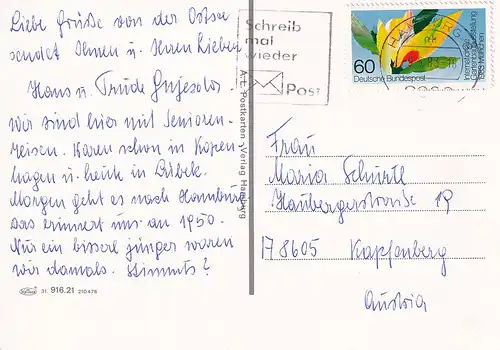 Liebe Grüße von der Ostsee
sendet Ihnen u. Ihren Lieben
Hans u. Trude
Wir sind hier mit Senioren-
reisen. Waren schon in Kopen-
hagen u. heute in Lübeck.
Morgen geht es nach Hamburg
das erinnert uns an 1950.
Nur ein bisserl jünger waren
wir damals. Stimmts?
31. 916.21 210476
A.E. Postkarten-Verlag Hamburg
Schreib
mal
wieder
Post
HAMBURG
60
Deutsche Bundespost
Internationale
Gartenbauausstellung
1983 München
Frau
Maria Schürtl
Haubergerstrasse 19
178605 Kapfenberg
Austria